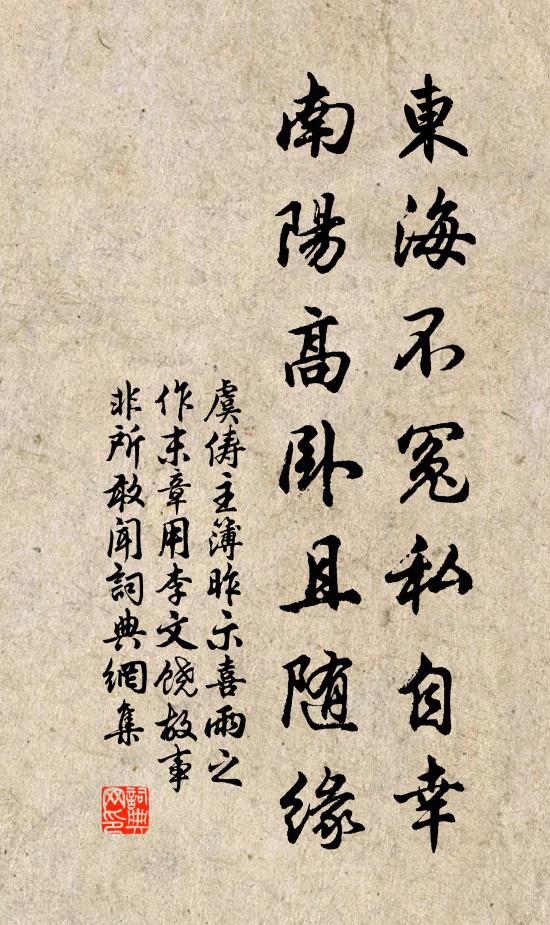 東海不冤私自幸
南陽高卧且随緣
虞儔主簿昨示喜雨之
作末章用李文饒故事
非所敢聞詞典網集
詞典网印